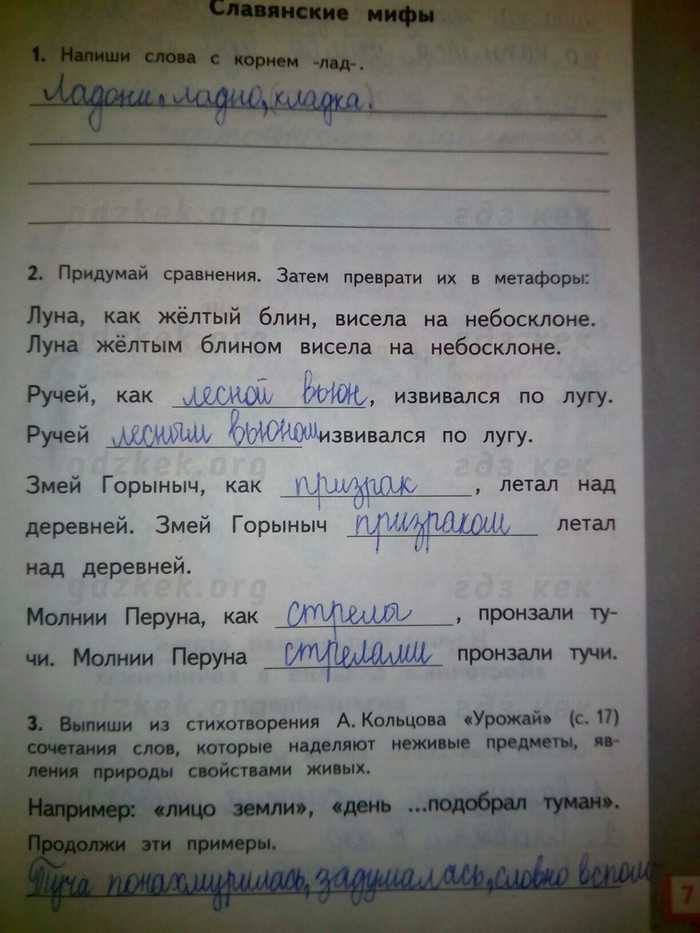 Славянские мифы
1. Напиши слова с корнем -лад-.
Ладони, ладно, кладка.
gdzkek.org гдз кек
2. Придумай сравнения. Затем преврати их в метафоры:
Луна, как жёлтый блин, висела на небосклоне.
Луна жёлтым блином висела на небосклоне.
Ручей, как лесной вьюн, извивался по лугу.
Ручей лесным вьюном извивался по лугу.
gdzkek.org гдз кек
Змей Горыныч, как призрак, летал над
деревней. Змей Горыныч призраком летал
над деревней.
gdzkek.org гдз кек
Молнии Перуна, как стрелы, пронзали ту-
чи. Молнии Перуна стрелами пронзали тучи.
gdzkek.org гдз кек
3. Выпиши из стихотворения А. Кольцова «Урожай» (с. 17)
сочетания слов, которые наделяют неживые предметы, яв-
ления природы свойствами живых.
Например: «лицо земли», «день ...подобрал туман».
Продолжи эти примеры.
Туча понахмурилась, задумалась, словно вспом-
7